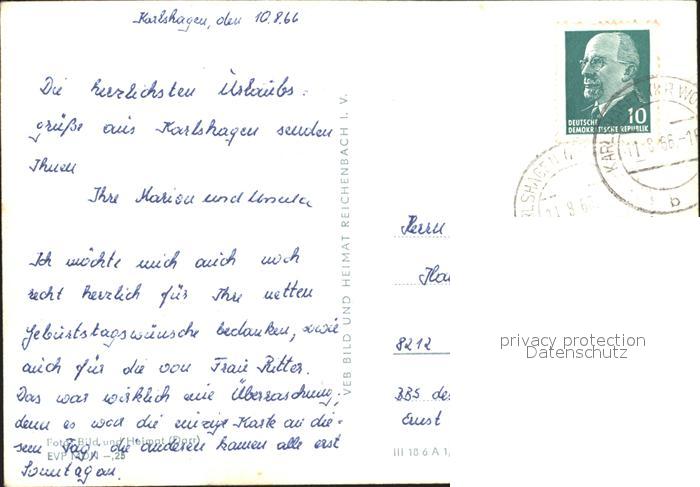 Karlshagen, den 10.8.66
Die herzlichsten Urlaubs-
grüße aus Karlshagen senden
Ihnen
Ihre Marion und Ursula
Ich möchte mich auch noch
recht herzlich für Ihre netten
Geburtstagswünsche bedanken, sowie
auch für die von Frau Ritter.
Das war wirklich eine Überraschung,
denn es war die einzige Karte an die-
sem Tag, die anderen kamen alle erst
Sonntag an.
Foto: Bild und Heimat (Dart)
EVP MDN -,25
VEB BILD UND HEIMAT REICHENBACH I. V.
DEUTSCHE
DEMOKRATISCHE REPUBLIK
10
11.8.66
b
11.8.66
Herrn
8212
BBS des
Ernst
III 18 6 A 1/
privacy protection
Datenschutz